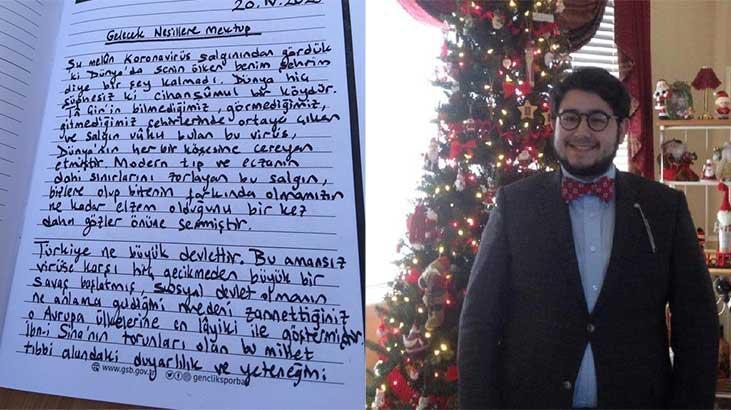 20.IV.2020
Gelecek Nesillere Mektup
Şu melûn Koronavirüs salgınından gördük
ki Dünya'da senin ülken benim şehrim
diye bir şey kalmadı. Dünya hiç
şüphesiz ki cihanşümul bir köydür.
Tâ Çin'in bilmediğimiz, görmediğimiz,
gitmediğimiz şehirlerinde ortaya çıkan
ve salgın vuku bulan bu virüs,
Dünya'nın her bir köşesine cereyan
etmiştir. Modern tıp ve eczanın
dahi sınırlarını zorlayan bu salgın,
bizlere olup bitenin farkında olmamızın
ne kadar elzem olduğunu bir kez
daha gözler önüne sermiştir.
Türkiye ne büyük devlettir. Bu amansız
virüse karşı hiç gecikmeden büyük bir
savaş başlatmış, sosyal devlet olmanın
ne anlama geldiğini medeni zannettiğiniz
o Avrupa ülkelerine en lâyiki ile göstermiştir.
İbn-i Sina'nın torunları olan bu millet
tıbbi alandaki duyarlılık ve yeteneğini
www.gsb.gov.tr gencliksporba